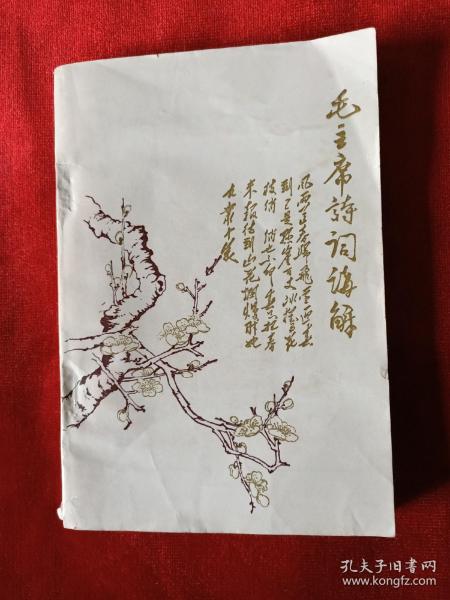 毛主席詩词講解
风雨送春归飛雪迎春
到已是悬崖百丈冰犹有花
枝俏 俏也不争春只把春
来报待到山花烂漫时她
在丛中笑
孔夫子旧书网
www.kongfz.com